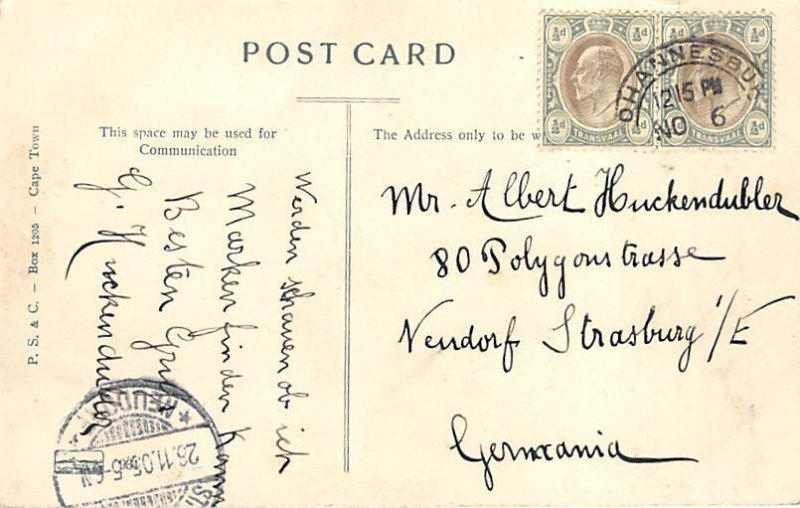 POST CARD
½d ½d
TRANSVAAL
½d ½d
½d ½d
TRANSVAAL
½d
JOHANNESBURG
12 15 PM
NO 6
This space may be used for
Communication
The Address only to be w
P. S. & C. – Box 1205 – Cape Town
Werden schauen ob ich
Marken finden Kann
Besten Gruss
G. Huckendubler
Mr. Albert Huckendubler
80 Polygonstrasse
Neudorf Strasburg i/E
Germania
* NEUDORF *
26.11.05. 5-6N